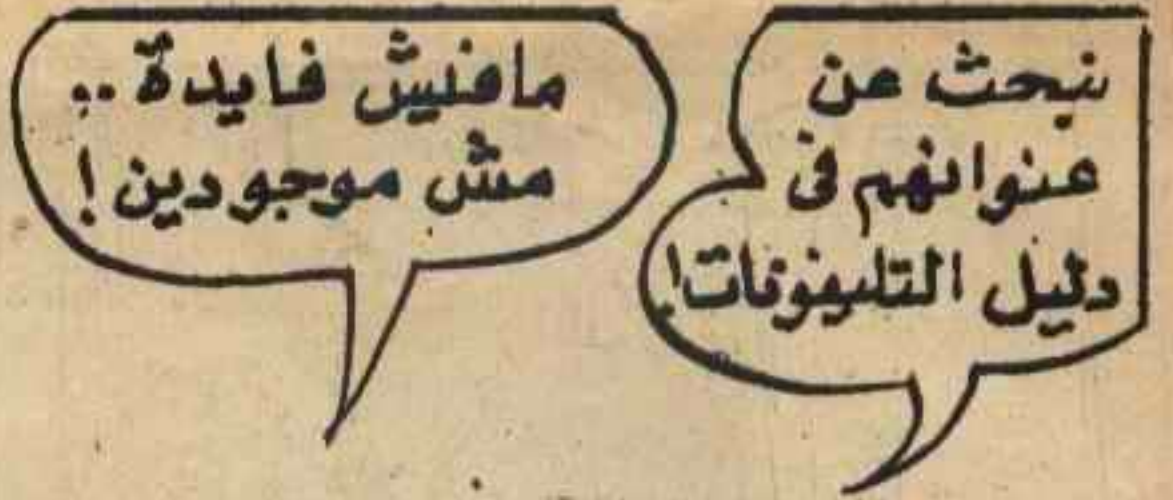 نبحث عن
عنوانهم فى
دليل التليفونات!
مافيش فايدة ..
مش موجودين!